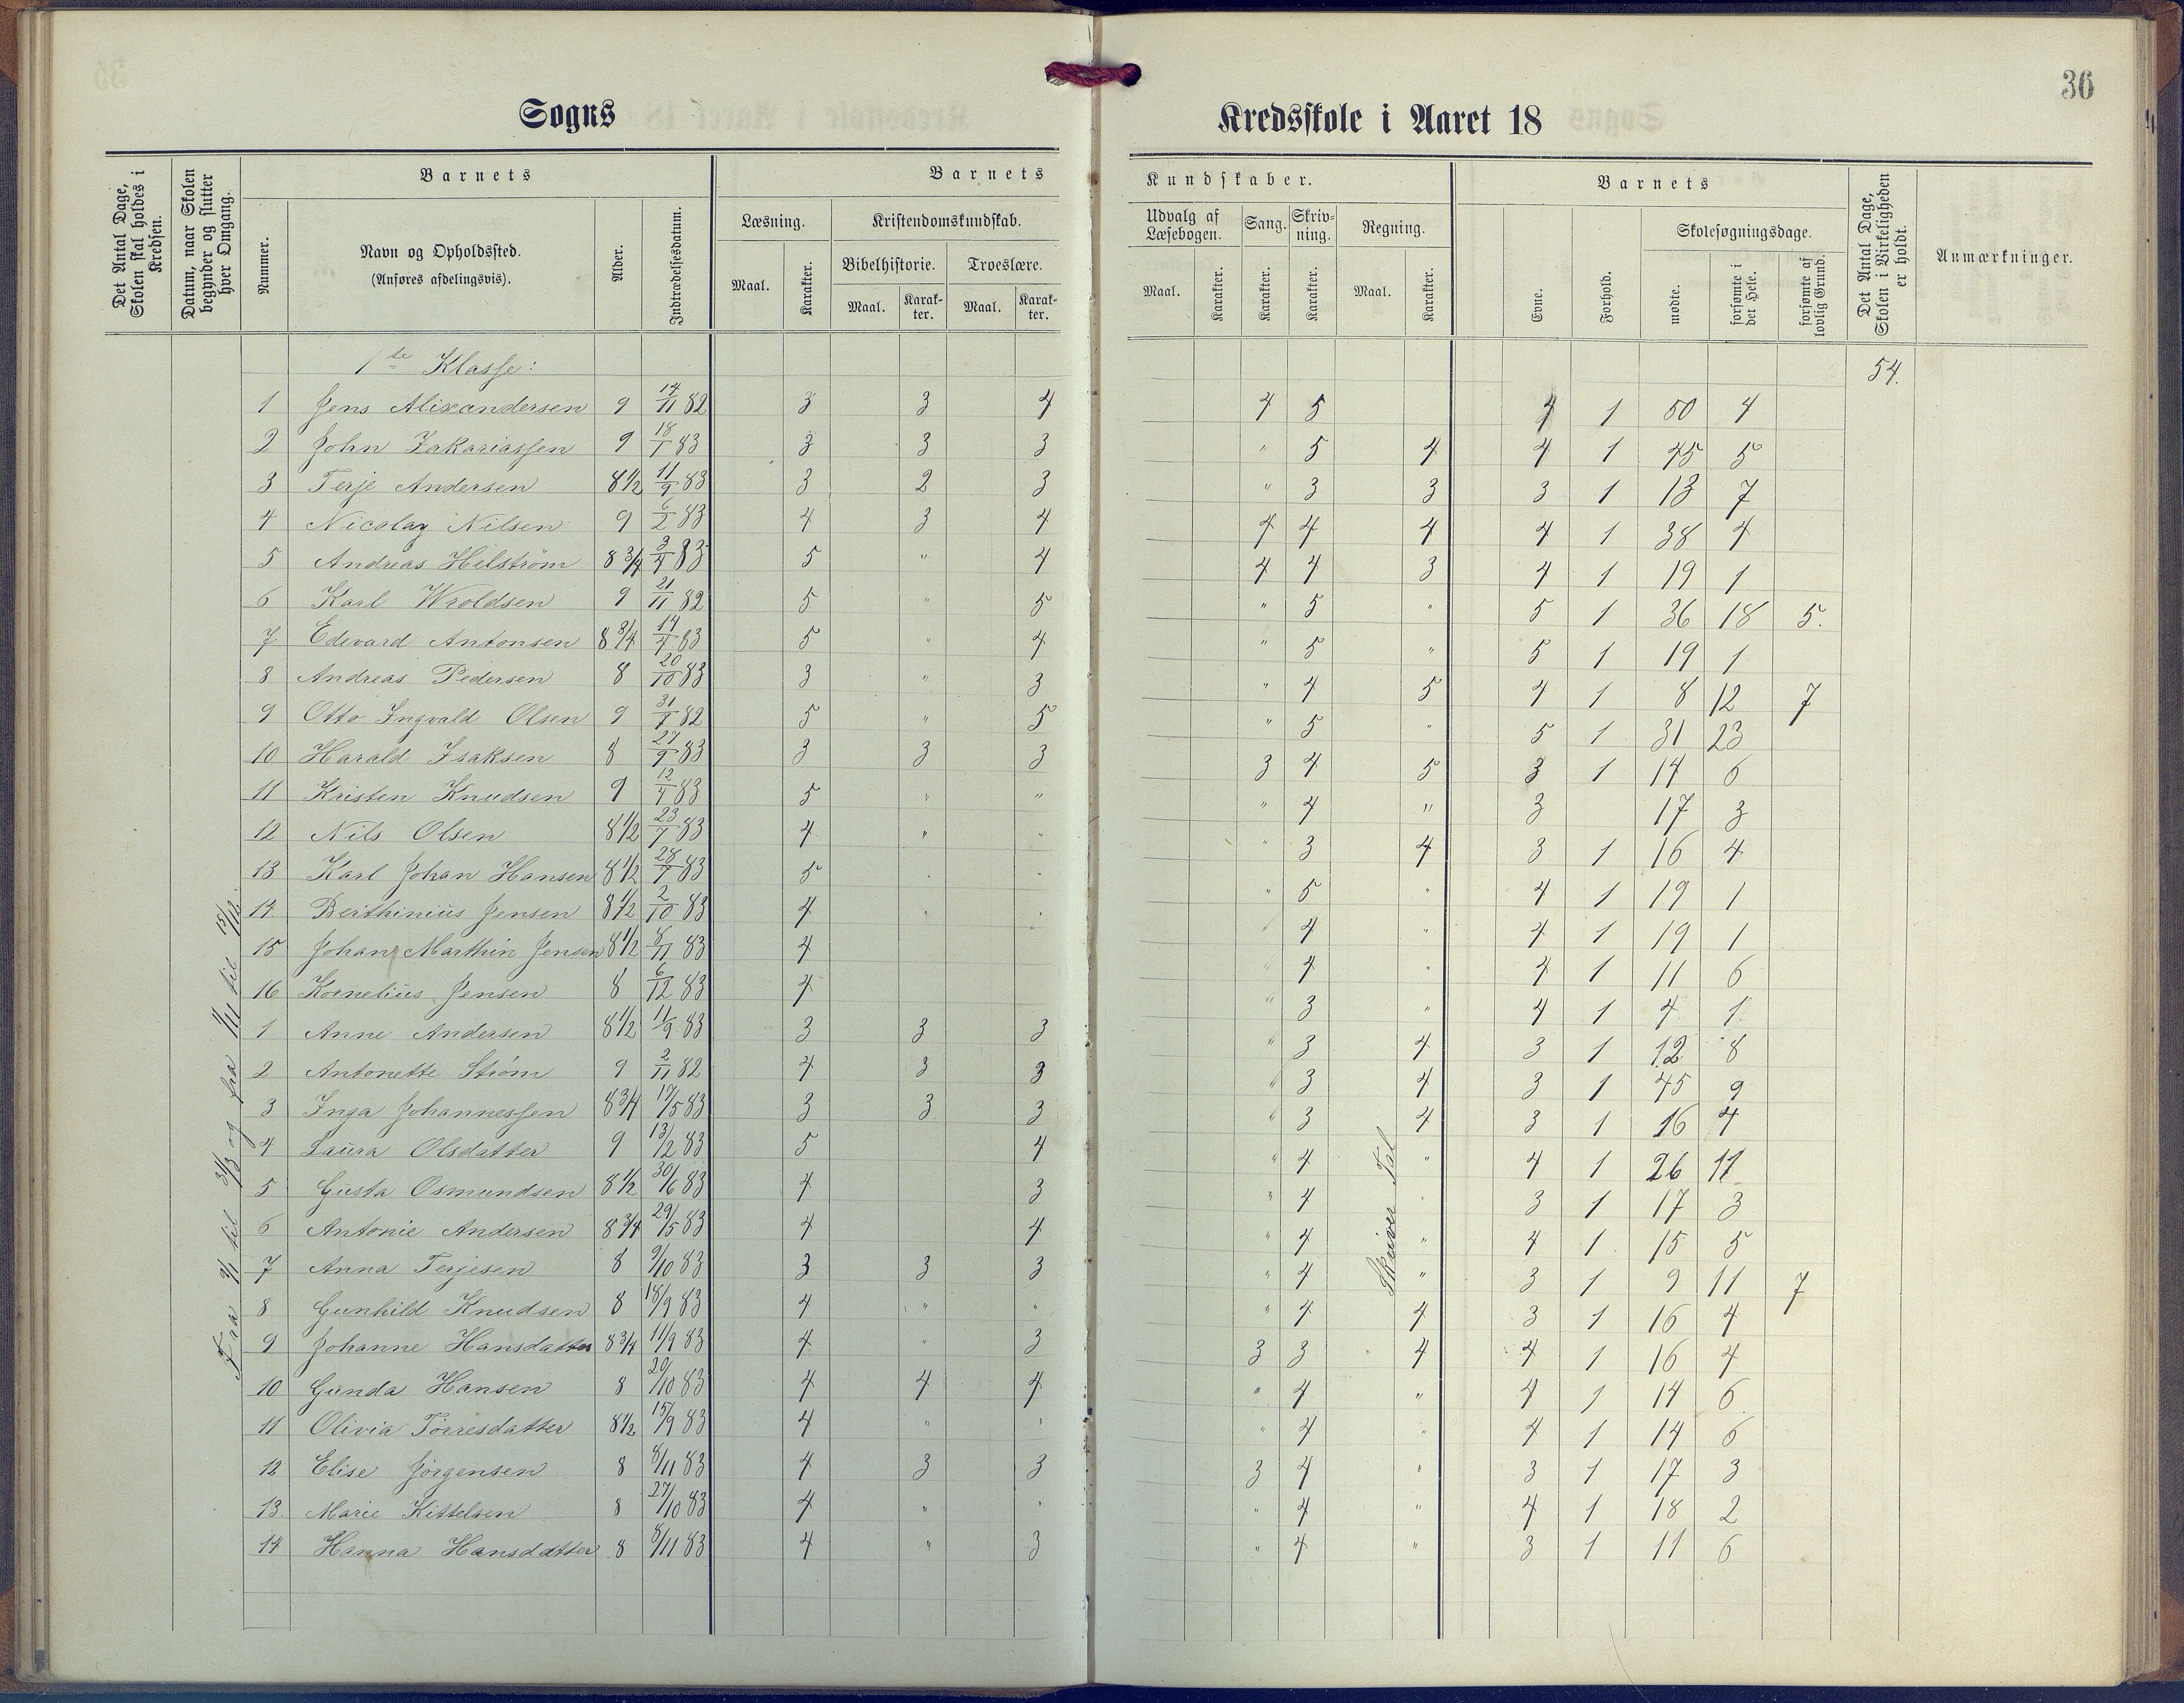 36
Sogns Kredsskole i Aaret 18
Det Antal Dage, Skolen skal holdes i Kredsen.
Datum, naar Skolen begynder og slutter hver Omgang.
Barnets
Nummer.
Navn og Opholdssted.
(Anføres afdelingsvis).
Alder.
Indtrædelsesdatum.
Barnets Kundskaber.
Læsning.
Maal.
Karakter.
Kristendomskundskab.
Bibelhistorie.
Maal.
Karakter.
Troeslære.
Maal.
Karakter.
Udvalg af Læsebogen.
Maal.
Karakter.
Sang.
Karakter.
Skrivning.
Karakter.
Regning.
Maal.
Karakter.
Barnets
Evne.
Forhold.
Skolesøgningsdage.
mødte.
forsømte i det Hele.
forsømte af lovlig Grund.
Det Antal Dage, Skolen i Virkeligheden er holdt.
Anmærkninger.
1ste Klasse: 54.
1 Jens Alixandersen 9 14/11 82 3 3 4 4 5 4 1 50 4
2 John Zakariassen 9 18/1 83 3 3 3 " 5 4 4 1 45 5
3 Terje Andersen 8 1/2 11/9 83 3 2 3 " 3 3 3 1 13 7
4 Nicolay Nilsen 9 6/2 83 4 3 4 4 4 4 4 1 38 4
5 Andreas Helström 8 3/4 3/4 83 5 " 4 4 4 3 4 1 19 1
6 Karl Wroldsen 9 21/11 82 5 " 5 " 5 " 5 1 36 18 5.
7 Edevard Antonsen 8 3/4 14/4 83 5 " 4 " 5 " 5 1 19 1
8 Andreas Pedersen 8 20/10 83 3 " 3 " 4 5 4 1 8 12 7
9 Otto Ingvald Olsen 9 82 5 " 5 " 5 " 5 1 31 23
10 Harald Isaksen 8 27/9 83 3 3 3 3 4 5 3 1 14 6
11 Kristen Knudsen 9 12/4 83 5 " " " 4 " 3 17 3
12 Nils Olsen 8 1/2 83 4 " " " 3 4 3 1 16 4
13 Karl Johan Hansen 8 1/2 83 5 " " " 5 " 4 1 19 1
14 Berthinius Jensen 8 1/2 2/10 83 4 " " " 4 " 4 1 19 1
15 Johan Marthin Jensen 8 1/2 8/11 83 4 " 4 " 4 1 11 6
16 Kornelius Jensen 8 6/12 83 4 " 3 " 4 1 4 1
1 Anne Andersen 8 1/2 11/9 83 3 3 3 " 3 4 3 1 12 8
2 Antonette Strøm 9 2/11 82 4 3 3 " 3 4 3 1 45 9
3 Inga Johannessen 8 3/4 17/5 83 3 3 3 " 3 4 3 1 16 4
4 Laura Olsdatter 9 13/2 83 5 4 " 4 " 4 1 26 11
5 Gusta Osmundsen 8 1/2 30/6 83 4 3 " 4 " 3 1 17 3
6 Antonie Andersen 8 3/4 29/5 83 4 4 " 4 " 4 1 15 5
7 Anna Terjesen 8 9/10 83 3 3 3 " 4 " 3 1 9 11 7
8 Gunhild Knudsen 8 18/9 83 4 " " " 4 4 3 1 16 4
9 Johanne Hansdatter 8 3/4 11/9 83 4 " 3 3 3 4 4 1 16 4
10 Gunda Hansen 8 20/10 83 4 4 4 " 4 " 4 1 14 6
11 Olivia Tørresdatter 8 1/2 15/9 83 4 " " " 4 " 4 1 14 6
12 Elise Jørgensen 8 8/11 83 4 3 3 3 4 " 3 1 17 3
13. Marie Kittelsen 8 27/10 83 4 " " " 4 " 4 1 18 2
14 Hanna Hansdatter 8 8/11 83 4 " 3 " 4 " 3 1 11 6
Fra 9/1 til 31/3 og fra 11/11 til 15/12.
Skriver Tal